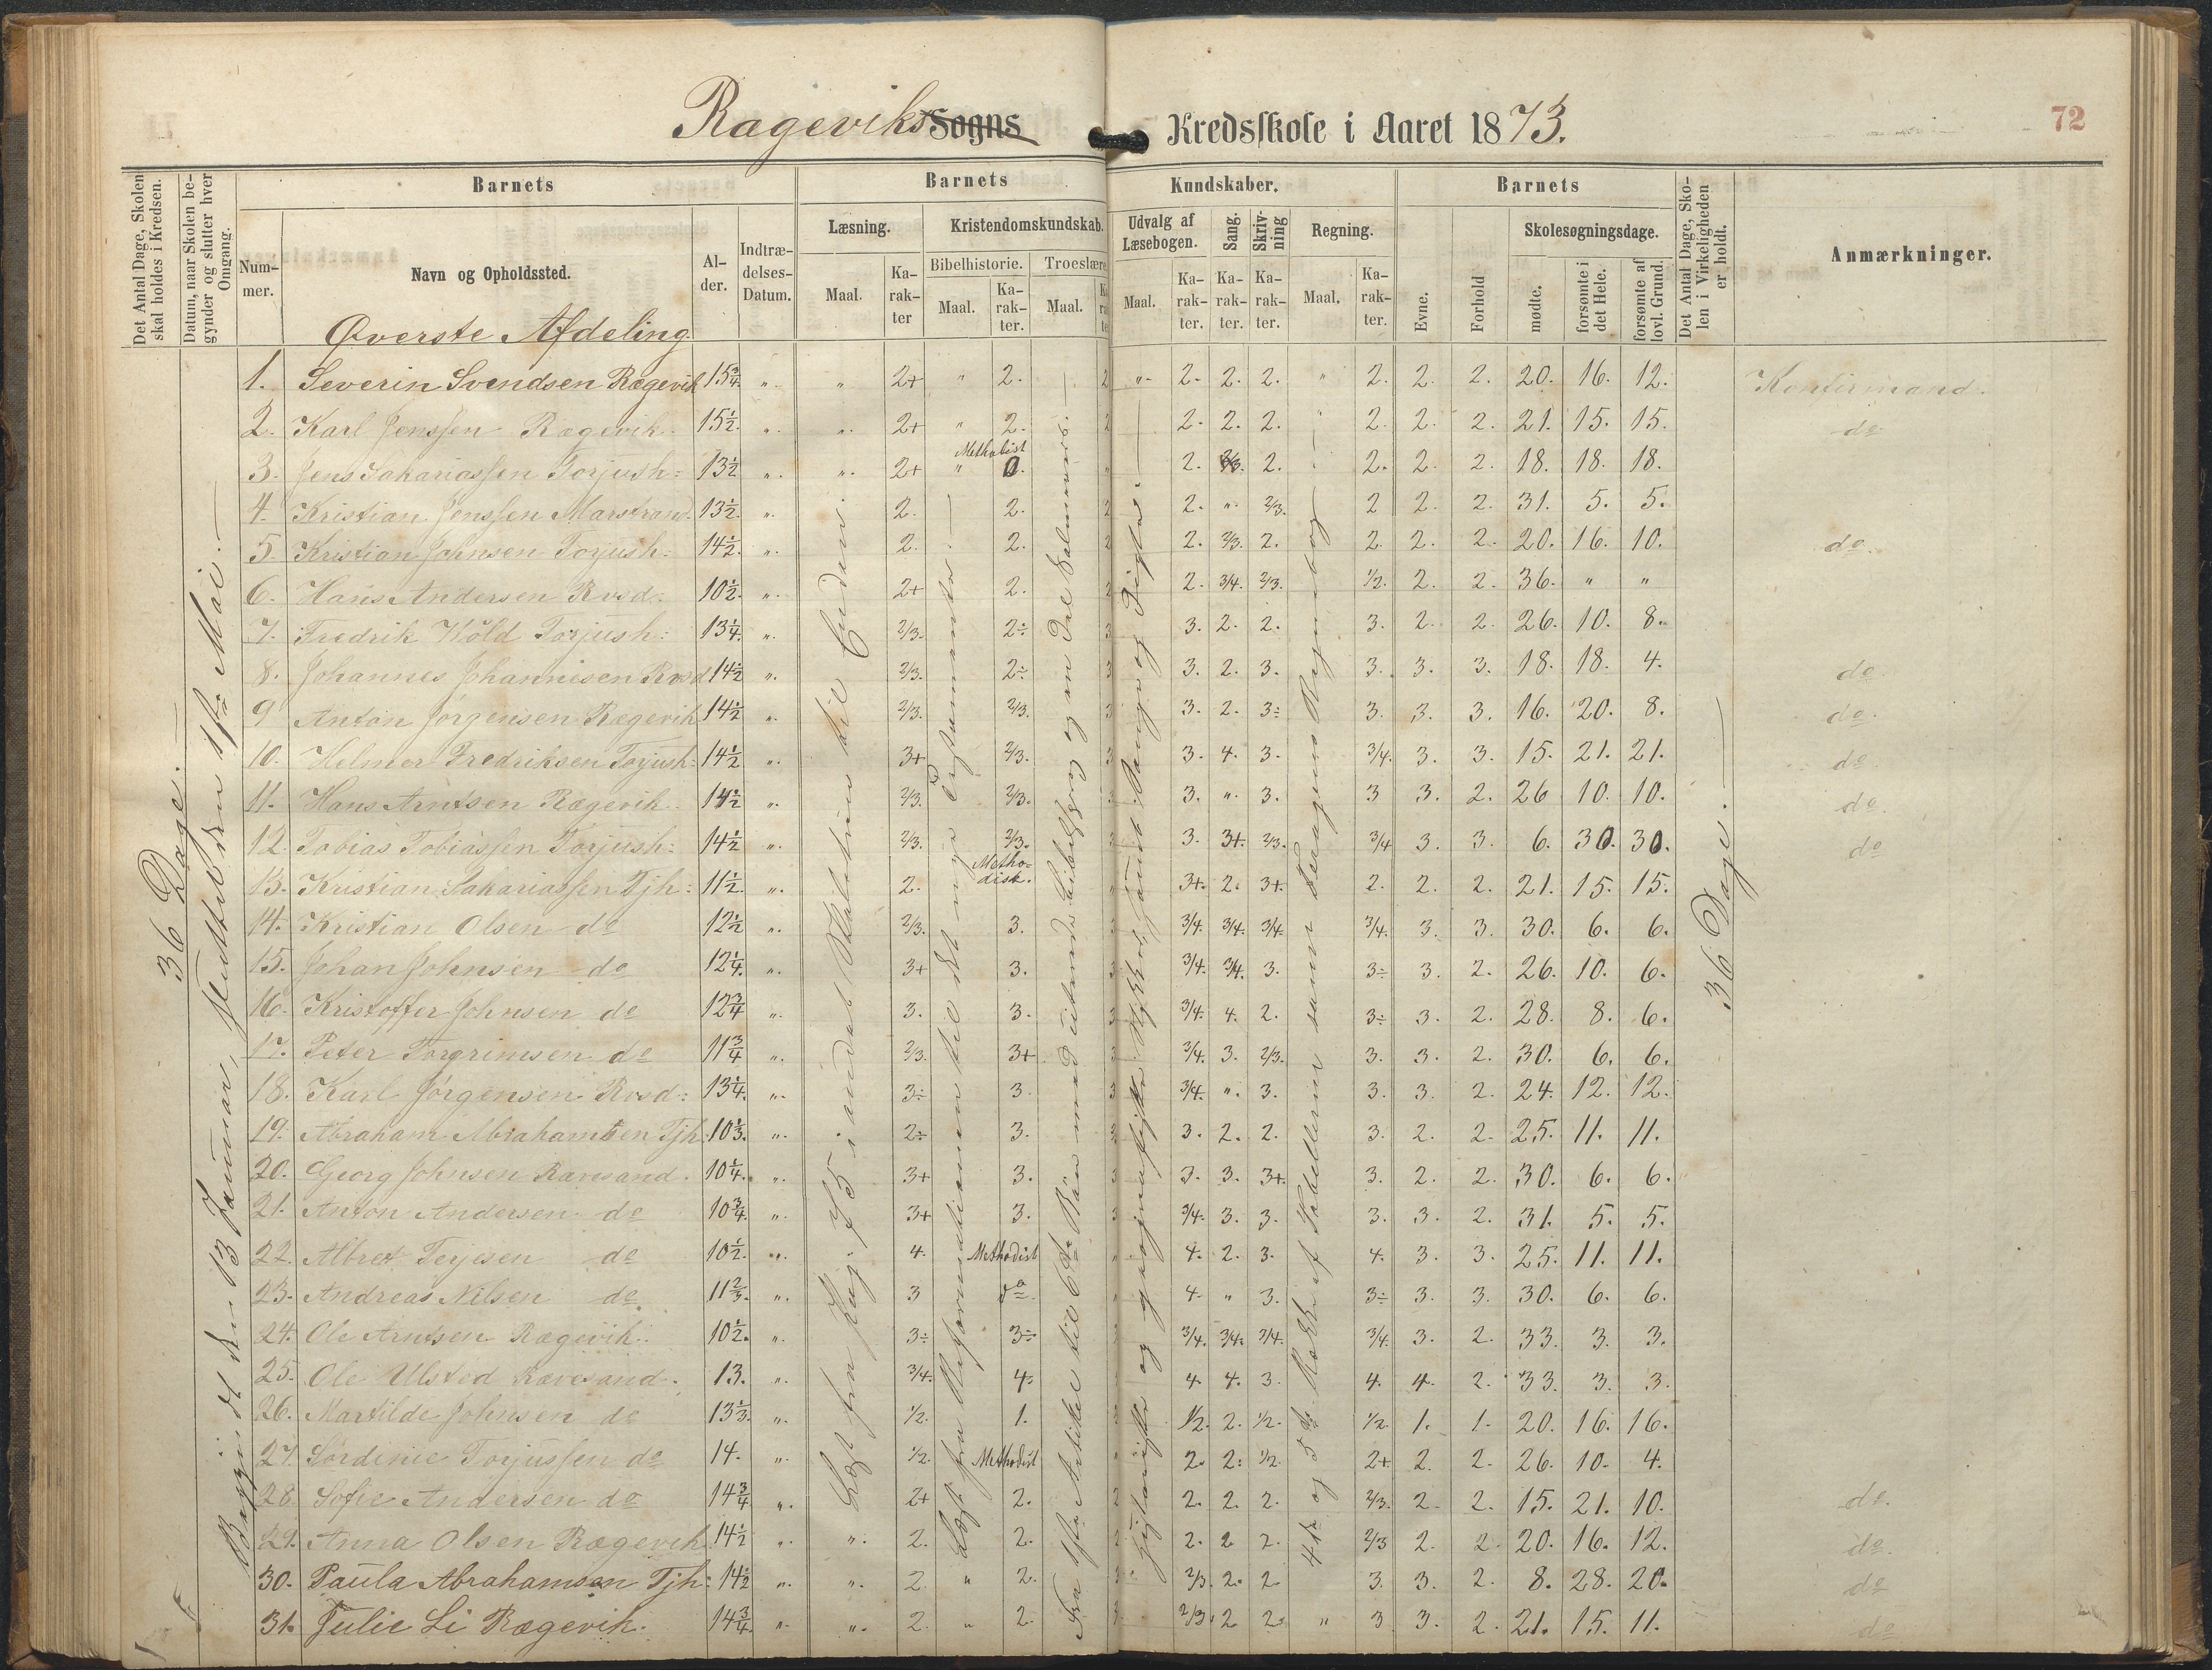 Rageviks Sogns Kredsskole i Aaret 1873. 72
Det Antal Dage, Skolen skal holdes i Kredsen.
Datum, naar Skolen begynder og slutter hver Omgang.
Barnets
Barnets
Kundskaber.
Barnets
Det Antal Dage, Skolen i Virkeligheden er holdt.
Anmærkninger.
Nummer.
Navn og Opholdssted.
Alder.
Indtrædelses-Datum.
Læsning.
Kristendomskundskab.
Udvalg af Læsebogen.
Sang.
Skrivning
Regning.
Evne.
Forhold
Skolesøgningsdage.
Bibelhistorie.
Troeslære
Maal.
Karakter
Maal.
Karakter.
Maal.
Maal.
Karakter.
Karakter.
Karakter.
Maal.
Karakter.
mødte.
forsømte i det Hele.
forsømte af lovl. Grund.
Øverste Afdeling
36 Dage.
Begyndt den 13 Januar, sluttet den 1ste Mai.
36 Dage.
1. Severin Svendsen Ragevik 15 3/4 " " 2+ " 2. 2 " 2. 2. 2. " 2. 2. 2. 20. 16. 12. Konfirmand.
2. Karl Jenssen Ragevik 15 1/2 " " 2+ " 2. 2 2. 2. 2. " 2. 2. 2. 21. 15. 15. do
3. Jens Sakariassen Torjush: 13 1/2 " " 2+ " Methodist 0. " 2. 2/3. 2. 2. 2. 2. 18. 18. 18.
4. Kristian Jenssen Marstrand 13 1/2 " 2. 2. 2 2. " 2/3. 2 2. 2. 31. 5. 5.
5. Kristian Johnsen Torjush: 14 1/2 " 2. 2. 2 2. 2/3. 2. 2. 2. 2. 20. 16. 10. do
6. Hans Andersen Rvsd: 10 1/2 " 2+ 2. 2 2. 3/4. 2/3. 1/2. 2. 2. 36. " "
7. Fredrik Wold Torjush: 13 1/4 " 2/3. 2÷ 3 3. 2. 2. 3. 2. 2. 26. 10. 8.
8. Johannes Johannesen Rvsd 14 1/2 " 2/3. 2÷ 3 3. 2. 3. 3. 3. 3. 18. 18. 4. do
9 Anton Jørgensen Rægevik 14 1/2 " 2/3. 2/3. 3 3. 2. 3÷ 3. 3. 3. 16. 20. 8. do.
10. Helmer Fredriksen Torjush: 14 1/2 " 3+ 2/3. 3 3. 4. 3. 3/4. 3. 3. 15. 21. 21. do
11. Hans Arntsen Rægevik 14 1/2 " 2/3. 2/3. 3 3. " 3. 3 3. 2. 26 10. 10. do.
12. Tobias Tobiassen Torjush: 14 1/2 " 2/3. 2/3. 3. 3+. 2/3. 3/4 3. 3. 6. 30. 30. do
13. Kristian Sakariassen Tjh: 11 1/2 " 2. Methodist. " 3+. 2. 3+. 2. 2. 2. 21. 15. 15.
14. Kristian Olsen do 12 1/2 " 2/3. 3. 3 3/4. 3/4. 3/4. 3/4. 3. 3. 30. 6. 6.
15. Johan Johnsen do 12 1/4 " 3+ 3. 3 3/4. 3/4. 3. 3÷ 3. 2. 26. 10. 6.
16. Kristoffer Johnsen do 12 3/4 " 3. 3. 3 3/4. 4. 2. 3÷ 3. 2. 28. 8. 6.
17. Peter Torgrimsen do 11 3/4 " 2/3. 3+ 3 3/4. 3. 2/3. 3. 3. 2. 30. 6. 6.
18. Karl Jørgensen Rvsd: 13 1/4 " 3÷ 3. 3 3/4. " 3. 3. 3. 2. 24. 12. 12.
19. Abraham Abrahamsen Tjh: 10 1/3. " 2÷ 3. 3. 2. 2. 3. 2. 2. 25. 11. 11.
20. Georg Johnsen Ravesand. 10 1/4. " 3+ 3. 3 3. 3. 3+. 3. 2. 2. 30. 6. 6.
21. Anton Andersen do 10 3/4. " 3+ 3. 3 3/4. 3. 3. 3. 3. 2. 31. 5. 5.
22. Albret Terjesen do 10 1/2. " 4. Methodist " 4. 2. 3. 4. 3. 3. 25. 11. 11.
23. Andreas Nilsen do 11 2/3. " 3 do " 4. " 3. 3÷ 3. 3. 30. 6. 6.
24. Ole Arntsen Rægevik. 10 1/2. " 3÷ 3÷ 3/4. 3/4. 3/4. 3/4. 3. 2. 33. 3. 3.
25. Ole Ulsted Ravesand. 13. " 3/4. 4. 4. 4. 3. 4. 4. 2. 33. 3. 3.
26. Martilde Johnsen do 13 1/3. " 1/2. 1. 1/2. 2. 1/2. 1/2. 1. 1. 20. 16. 16.
27. Sørdinie Torjussen do 14. " 1/2. Methodist " 2. 2. 1/2. 2+. 2. 2. 26. 10. 4.
28. Sofie Andersen do 14 3/4 " 2+ 2. 2 2. 2. 2. 2/3. 2. 2. 15. 21. 10. do.
29. Anna Olsen Rægevik 14 1/2 " " 2. 2. 2 2. 2 2. 2/3 2. 2. 20. 16. 12. do.
30. Paula Abrahamsen Tjh: 14 1/2 " " 2. " 2. 2/3. 2. 2 3. 3. 2. 8. 28. 20. do
31. Julie Li Rægevik. 14 3/4. " " 2. " 2. 3. 2/3. 2 2. " 3 3. 2. 21. 15. 11. do